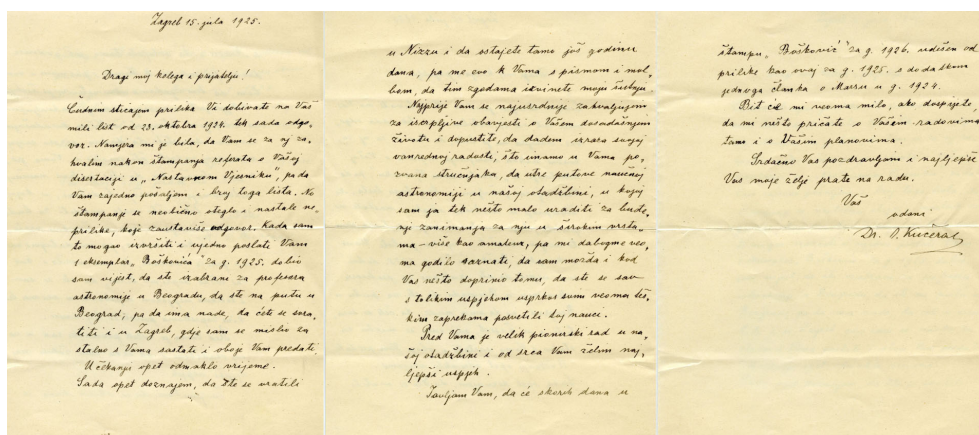 Zagreb 15. jula 1925.
Dragi moj kolega i prijatelju!
Čudnim sticajem prilika Vi dobivate na Vaš
mili list od 23. oktobra 1924. tek sada odgo-
vor. Namjera mi je bila, da Vam se za nj za-
hvalim nakon štampanja referata o Vašoj
disertaciji u „Nastavnom Vjesniku", pa da
Vam zajedno pošaljem i broj toga lista. No
štampanje se neobično oteglo i nastale ne-
prilike, koje zaustaviše odgovor. Kada sam
to mogao izvršiti i ujedno poslati Vam
1 eksemplar „Boškovića" za g. 1925. dobio
sam vijest, da ste izabrani za profesora
astronomije u Beogradu, da ste na putu u
Beograd; pa da ima nade, da ćete se svra-
titi i u Zagreb, gdje sam se mislio za
stalno s Vama sastati i oboje Vam predati.
U čekanju opet odmaklo vrijeme.
Sada opet doznajem, da ste se vratili
u Nizzu i da ostajete tamo još godinu
dana, pa me evo k Vama s pismom i mol-
bom, da tim zgodama izvinete moju šutnju.
Najprije Vam se najusrdnije zahvaljujem
za iscrpljive obavjesti o Vašem dosadašnjem
životu i dopustite, da dadem izraza svojoj
vanrednoj radosti, što imamo u Vama po-
zvana stručnjaka, da utre putove naučnoj
astronomiji u našoj otadžbini, u kojoj
sam ja tek nešto malo uraditi za buđe-
nje zanimanja za nju u širokim vrsta-
ma – više kao amater, pa mi dabogme veo-
ma godilo saznati, da sam možda i kod
Vas nešto doprinio tomu, da ste se sav
s tolikim uspjehom usprkos svim veoma teš-
kim zaprekama posvetili toj nauci.
Pred Vama je velik pionirski rad u na-
šoj otadžbini i od srca Vam želim naj-
ljepši uspjeh.
Javljam Vam, da će skorih dana u
štampu „Bošković" za g. 1926. udešen od
prilike kao ovaj za g. 1925. s dodatkom
jednoga članka o Marsu u g. 1924.
Bit će mi veoma milo, ako dospijete,
da mi nešto pričate o Vašim radovima
tamo i o Vašim planovima.
Srdačno Vas pozdravljam i najljepše
Vas moje želje prate na radu.
Vaš
odani
Dr. O. Kučera